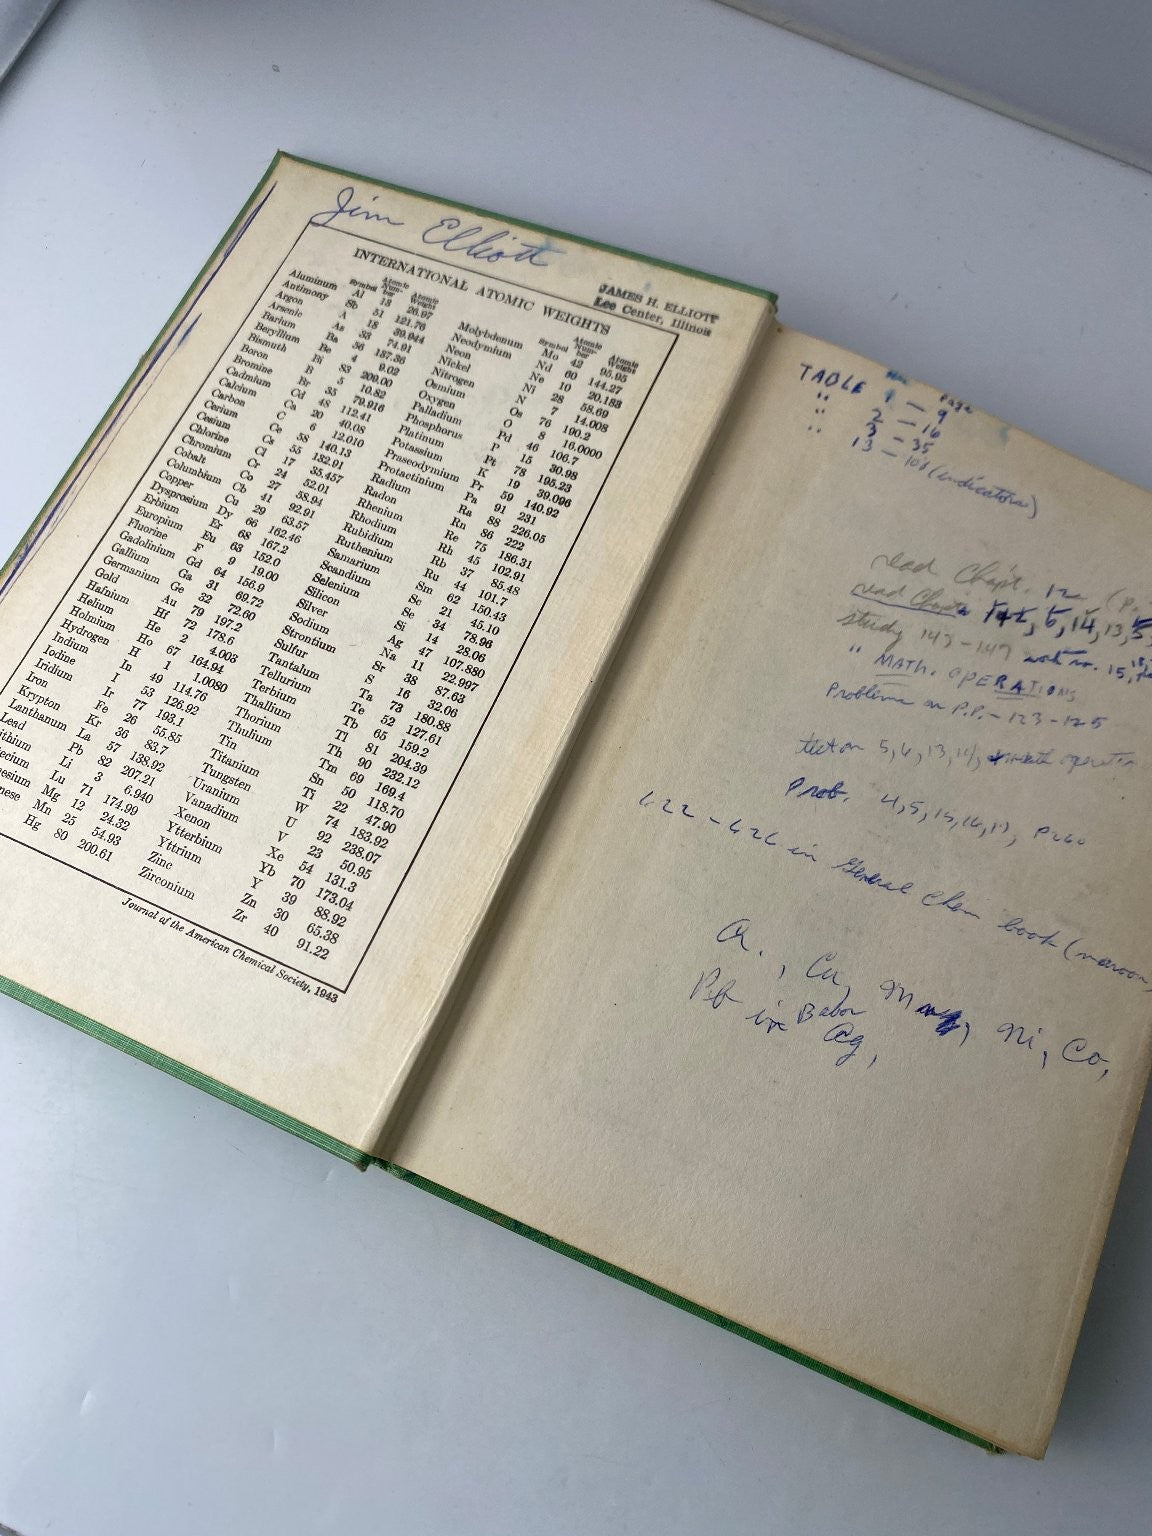 Jim Elliott
JAMES H. ELLIOTT
Lee Center, Illinois
INTERNATIONAL ATOMIC WEIGHTS
Symbol Atomic Number Atomic Weight
Aluminum Al 13 26.97
Antimony Sb 51 121.76
Argon A 18 39.944
Arsenic As 33 74.91
Barium Ba 56 137.36
Beryllium Be 4 9.02
Bismuth Bi 83 209.00
Boron B 5 10.82
Bromine Br 35 79.916
Cadmium Cd 48 112.41
Calcium Ca 20 40.08
Carbon C 6 12.010
Cerium Ce 58 140.13
Cesium Cs 55 132.91
Chlorine Cl 17 35.457
Chromium Cr 24 52.01
Cobalt Co 27 58.94
Columbium Cb 41 92.91
Copper Cu 29 63.57
Dysprosium Dy 66 162.46
Erbium Er 68 167.2
Europium Eu 63 152.0
Fluorine F 9 19.00
Gadolinium Gd 64 156.9
Gallium Ga 31 69.72
Germanium Ge 32 72.60
Gold Au 79 197.2
Hafnium Hf 72 178.6
Helium He 2 4.003
Holmium Ho 67 164.94
Hydrogen H 1 1.0080
Indium In 49 114.76
Iodine I 53 126.92
Iridium Ir 77 193.1
Iron Fe 26 55.85
Krypton Kr 36 83.7
Lanthanum La 57 138.92
Lead Pb 82 207.21
ithium Li 3 6.940
ecium Lu 71 174.99
esium Mg 12 24.32
nese Mn 25 54.93
Hg 80 200.61
Symbol Atomic Number Atomic Weight
Molybdenum Mo 42 95.95
Neodymium Nd 60 144.27
Neon Ne 10 20.183
Nickel Ni 28 58.69
Nitrogen N 7 14.008
Osmium Os 76 190.2
Oxygen O 8 16.0000
Palladium Pd 46 106.7
Phosphorus P 15 30.98
Platinum Pt 78 195.23
Potassium K 19 39.096
Praseodymium Pr 59 140.92
Protactinium Pa 91 231
Radium Ra 88 226.05
Radon Rn 86 222
Rhenium Re 75 186.31
Rhodium Rh 45 102.91
Rubidium Rb 37 85.48
Ruthenium Ru 44 101.7
Samarium Sm 62 150.43
Scandium Sc 21 45.10
Selenium Se 34 78.96
Silicon Si 14 28.06
Silver Ag 47 107.880
Sodium Na 11 22.997
Strontium Sr 38 87.63
Sulfur S 16 32.06
Tantalum Ta 73 180.88
Tellurium Te 52 127.61
Terbium Tb 65 159.2
Thallium Tl 81 204.39
Thorium Th 90 232.12
Thulium Tm 69 169.4
Tin Sn 50 118.70
Titanium Ti 22 47.90
Tungsten W 74 183.92
Uranium U 92 238.07
Vanadium V 23 50.95
Xenon Xe 54 131.3
Ytterbium Yb 70 173.04
Yttrium Y 39 88.92
Zinc Zn 30 65.38
Zirconium Zr 40 91.22
Journal of the American Chemical Society, 1943
Page
TABLE 1 — 9
" 2 — 16
" 3 — 35
" 13 — 108 (indicators)
read Chapt. 12
read Chapts 5, 14, 13, 5,
study 143 - 147 15,
" MATH. OPERATIONS
Problems on P.P. - 123 - 125
test on 5, 6, 13, 14, math operation
Prob. 4, 5, 15, 16, 17, P260
622 - 626 in General Chem book (maroon)
Cr., Cu, Ni, Co,
Pb in Babor Ag,